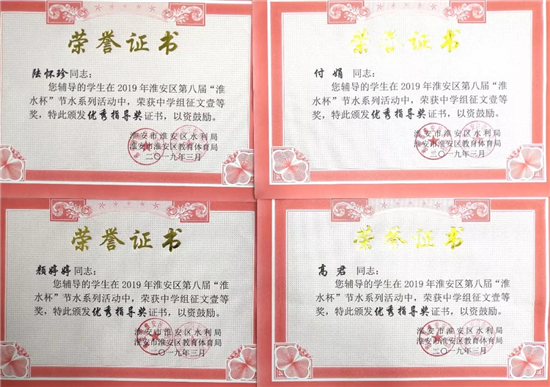 荣誉证书
陆怀珍同志：
您辅导的学生在2019年淮安区第八届“淮
水杯”节水系列活动中，荣获中学组征文壹等
奖，特此颁发优秀指导奖证书，以资鼓励。
淮安市淮安区水利局
淮安市淮安区教育体育局
二〇一九年三月
荣誉证书
付娟同志：
您辅导的学生在2019年淮安区第八届“淮
水杯”节水系列活动中，荣获中学组征文壹等
奖，特此颁发优秀指导奖证书，以资鼓励。
淮安市淮安区水利局
淮安市淮安区教育体育局
二〇一九年三月
荣誉证书
颜婷婷同志：
您辅导的学生在2019年淮安区第八届“淮
水杯”节水系列活动中，荣获中学组征文壹等
奖，特此颁发优秀指导奖证书，以资鼓励。
淮安市淮安区水利局
淮安市淮安区教育体育局
二〇一九年三月
荣誉证书
高君同志：
您辅导的学生在2019年淮安区第八届“淮
水杯”节水系列活动中，荣获中学组征文壹等
奖，特此颁发优秀指导奖证书，以资鼓励。
淮安市淮安区水利局
淮安市淮安区教育体育局
二〇一九年三月